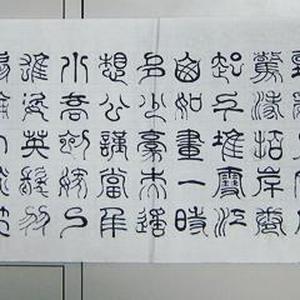 驚濤拍岸卷
起千堆雪江
山如畫一時
多少豪杰遙
想公瑾當年
小喬初嫁了
雄姿英發羽